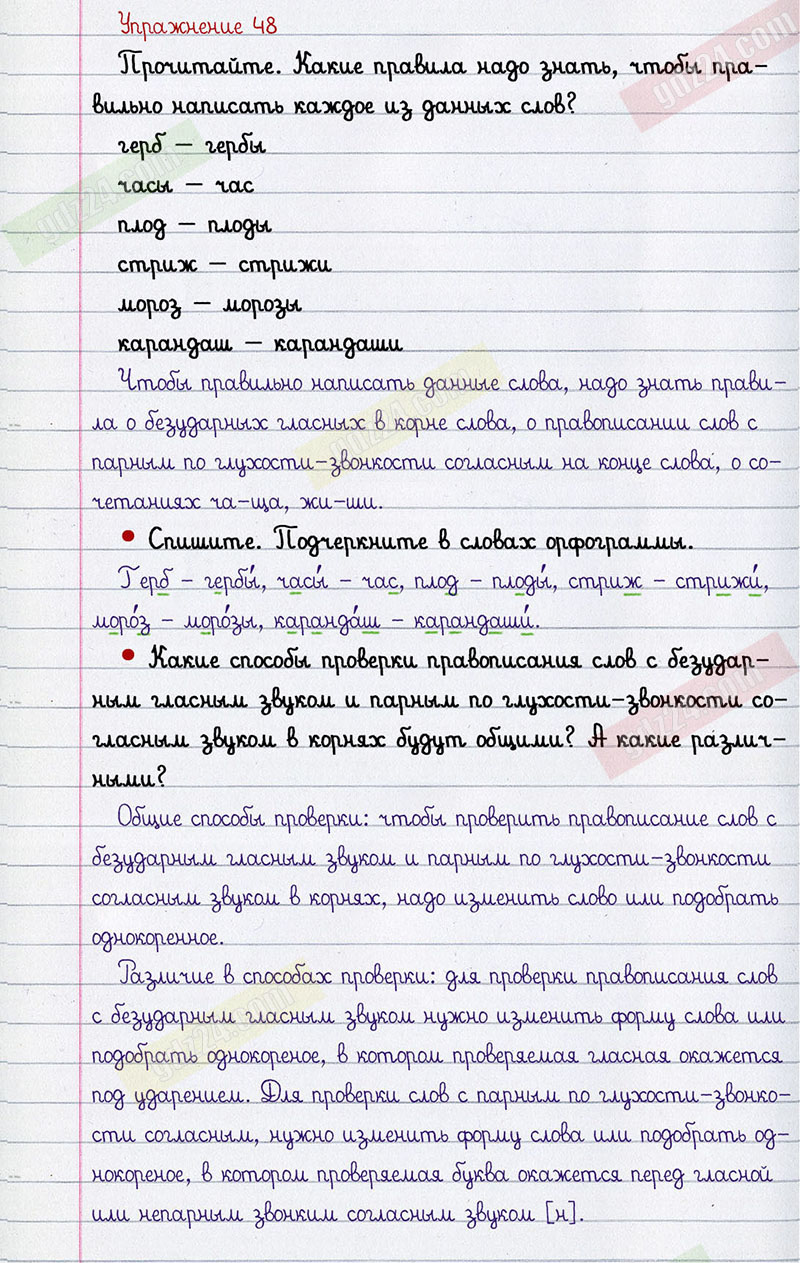 Упражнение 48
Прочитайте. Какие правила надо знать, чтобы пра-
вильно написать каждое из данных слов?
герб – гербы
часы – час
плод – плоды
стриж – стрижи
мороз – морозы
карандаш – карандаши
Чтобы правильно написать данные слова, надо знать прави-
ла о безударных гласных в корне слова, о правописании слов с
парным по глухости-звонкости согласным на конце слова, о со-
четаниях ча-ща, жи-ши.
• Спишите. Подчеркните в словах орфограммы.
Герб – гербы́, часы́ – час, плод – плоды́, стриж – стрижи́,
моро́з – моро́зы, каранда́ш – карандаши́.
• Какие способы проверки правописания слов с безудар-
ным гласным звуком и парным по глухости-звонкости со-
гласным звуком в корнях будут общими? А какие различ-
ными?
Общие способы проверки: чтобы проверить правописание слов с
безударным гласным звуком и парным по глухости-звонкости
согласным звуком в корнях, надо изменить слово или подобрать
однокоренное.
Различие в способах проверки: для проверки правописания слов
с безударным гласным звуком нужно изменить форму слова или
подобрать однокореное, в котором проверяемая гласная окажется
под ударением. Для проверки слов с парным по глухости-звонко-
сти согласным, нужно изменить форму слова или подобрать од-
нокореное, в котором проверяемая буква окажется перед гласной
или непарным звонким согласным звуком [н].
gdz24.com
gdz24.com
gdz24.com
gdz24.com
gdz24.com